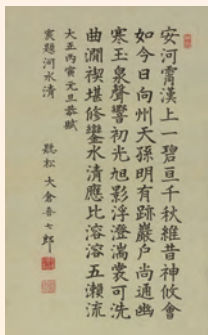 安河霄漢上一碧亘千秋維昔神攸會
如今日向州天孫明有跡巖戶尚通幽
寒玉泉聲響初光旭影浮澄湍裳可洗
曲澗禊堪修鑾水清應比溶溶五瀨流
大正丙寅元旦恭賦
宸題河水清 聽松 大倉喜七郎